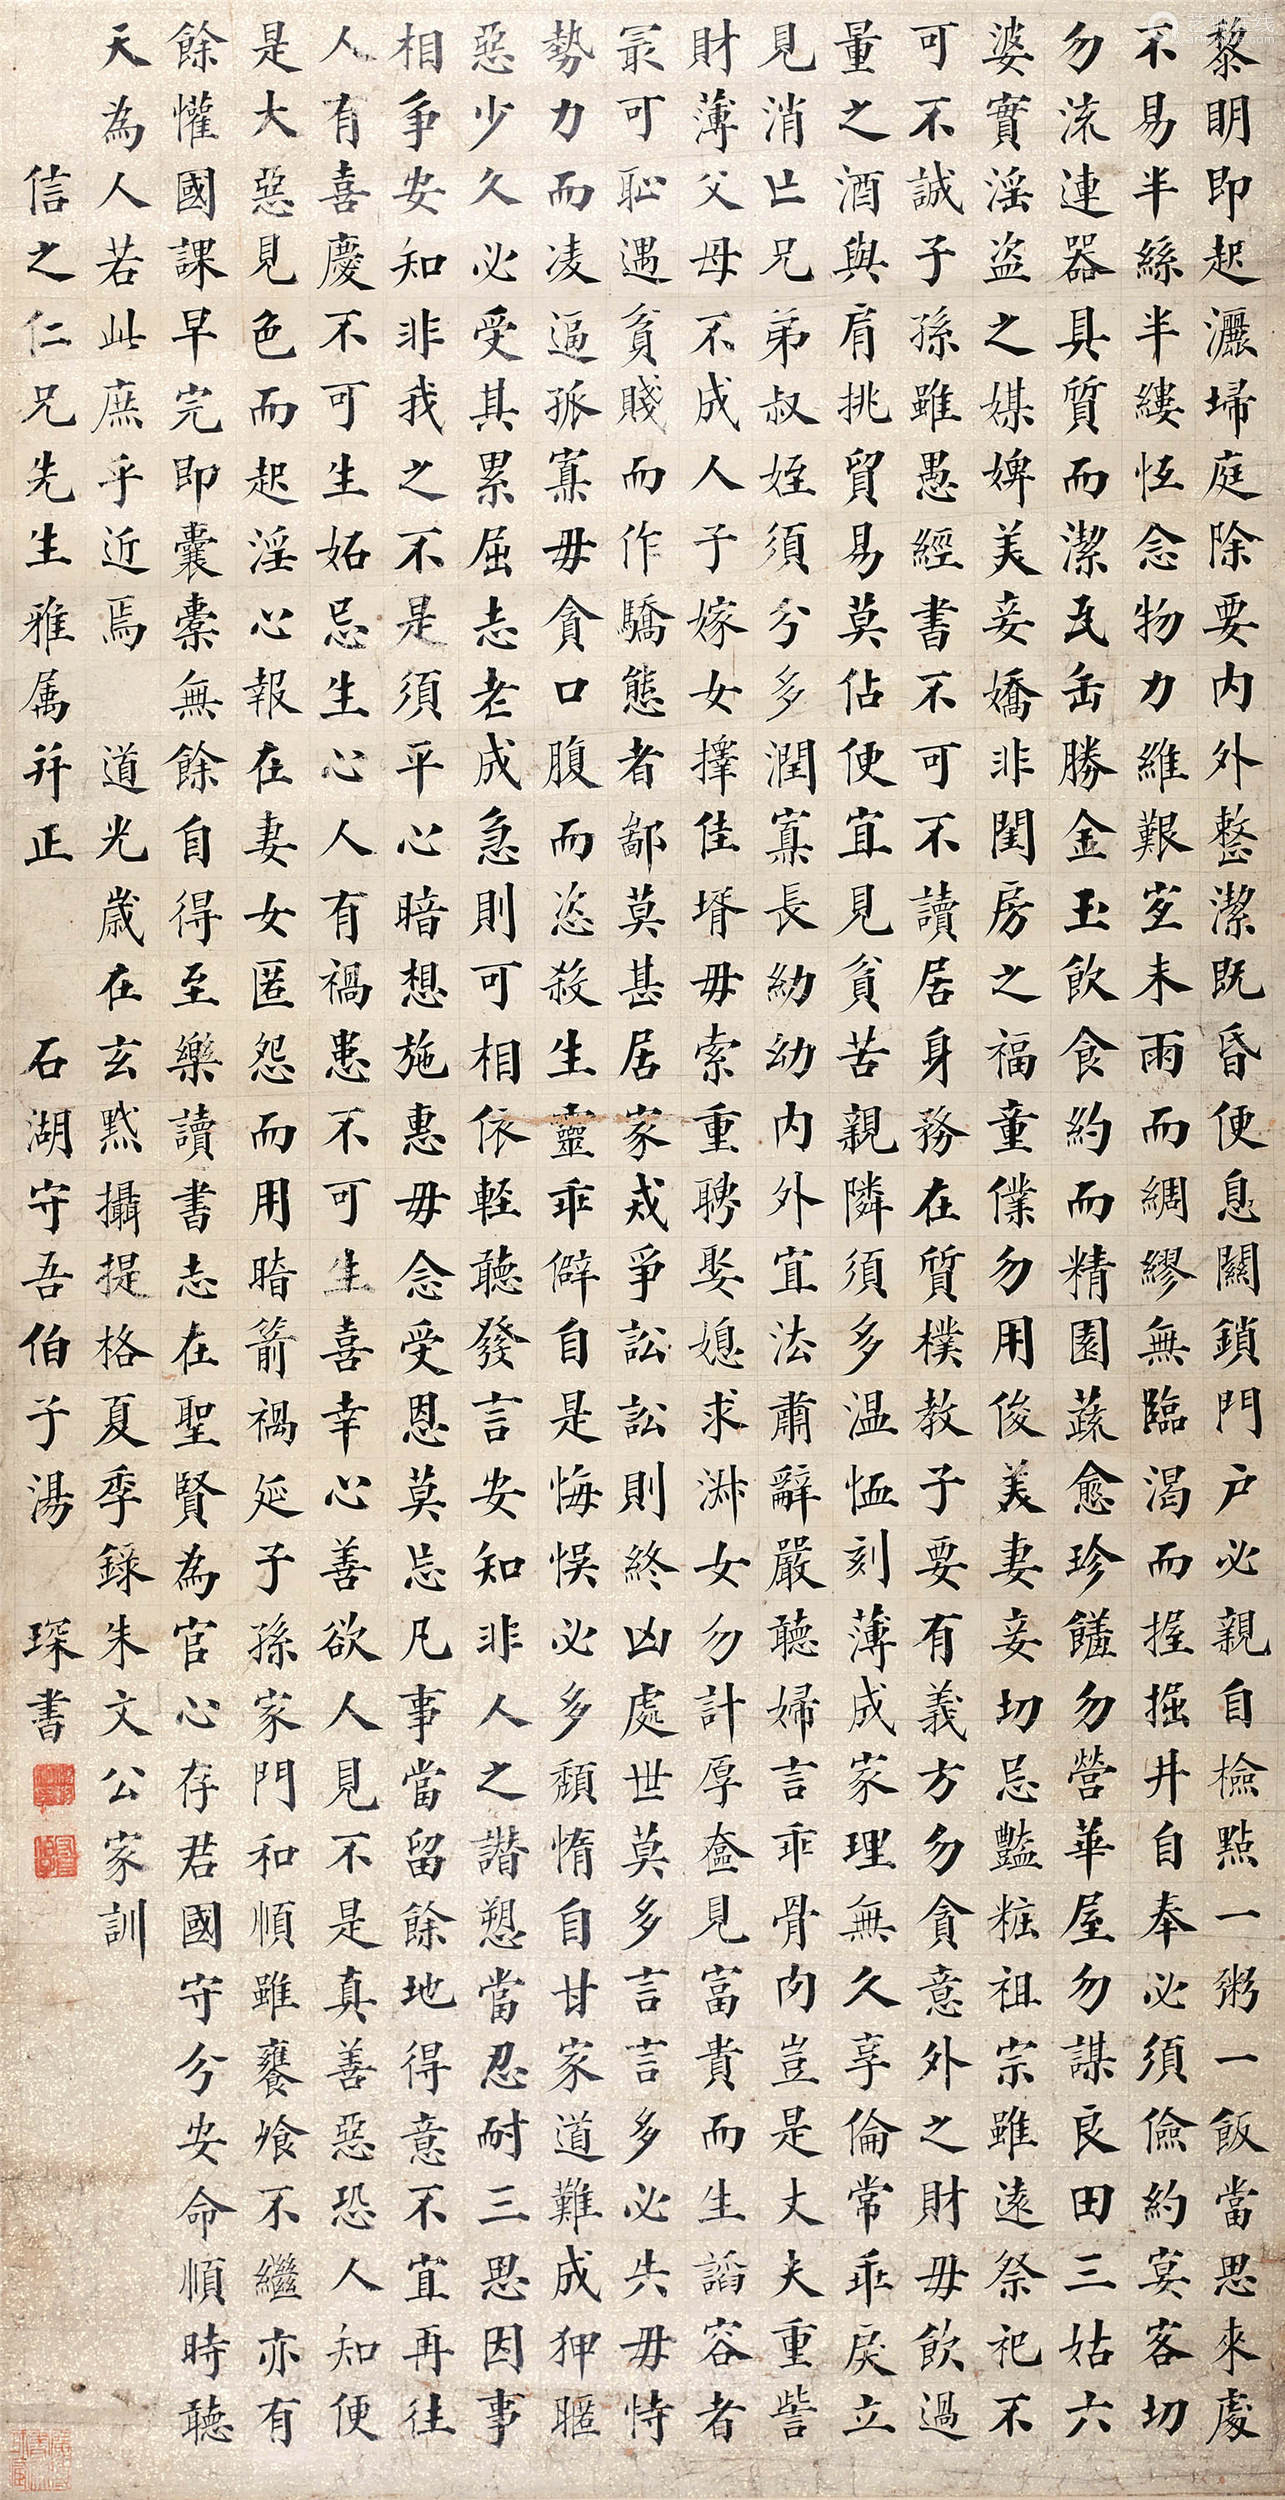 黎明即起灑埽庭除要内外整潔既昏便息關鎖門户必親自檢點一粥一飯當思來處
不易半絲半縷恆念物力維艱宜未雨而綢繆無臨渴而握掘井自奉必須儉約宴客切
勿流連器具質而潔瓦缶勝金玉飲食約而精園蔬愈珍饈勿營華屋勿謀良田三姑六
婆實淫盗之媒婢美妾嬌非閨房之福童僕勿用俊美妻妾切忌豔粧祖宗雖遠祭祀不
可不誠子孫雖愚經書不可不讀居身務在質樸教子要有義方勿貪意外之財毋飲過
量之酒與肩挑貿易莫佔便宜見貧苦親隣須多温恤刻薄成家理無久享倫常乖戾立
見消亡兄弟叔姪須分多潤寡長幼幼内外宜法肅辭嚴聽婦言乖骨肉豈是丈夫重訾
財薄父母不成人子嫁女擇佳壻毋索重聘娶媳求淑女勿計厚奩見富貴而生諂容者
最可恥遇貧賤而作驕態者鄙莫甚居家戒爭訟訟則終凶處世莫多言言多必失毋恃
勢力而凌逼孤寡毋貪口腹而恣殺生靈乖僻自是悔悞必多頽惰自甘家道難成狎暱
惡少久必受其累屈志老成急則可相依輕聽發言安知非人之譖愬當忍耐三思因事
相爭安知非我之不是須平心暗想施惠毋念受恩莫忘凡事當留餘地得意不宜再往
人有喜慶不可生妬忌生心人有禍患不可生喜幸心善欲人見不是真善惡恐人知便
是大惡見色而起淫心報在妻女匿怨而用暗箭禍延子孫家門和順雖饔飧不繼亦有
餘懽國課早完即囊橐無餘自得至樂讀書志在聖賢為官心存君國守分安命順時聽
天為人若此庶乎近焉 道光歲在玄黓攝提格夏季錄朱文公家訓
信之仁兄先生雅属并正 石湖守吾伯子湯 琛書